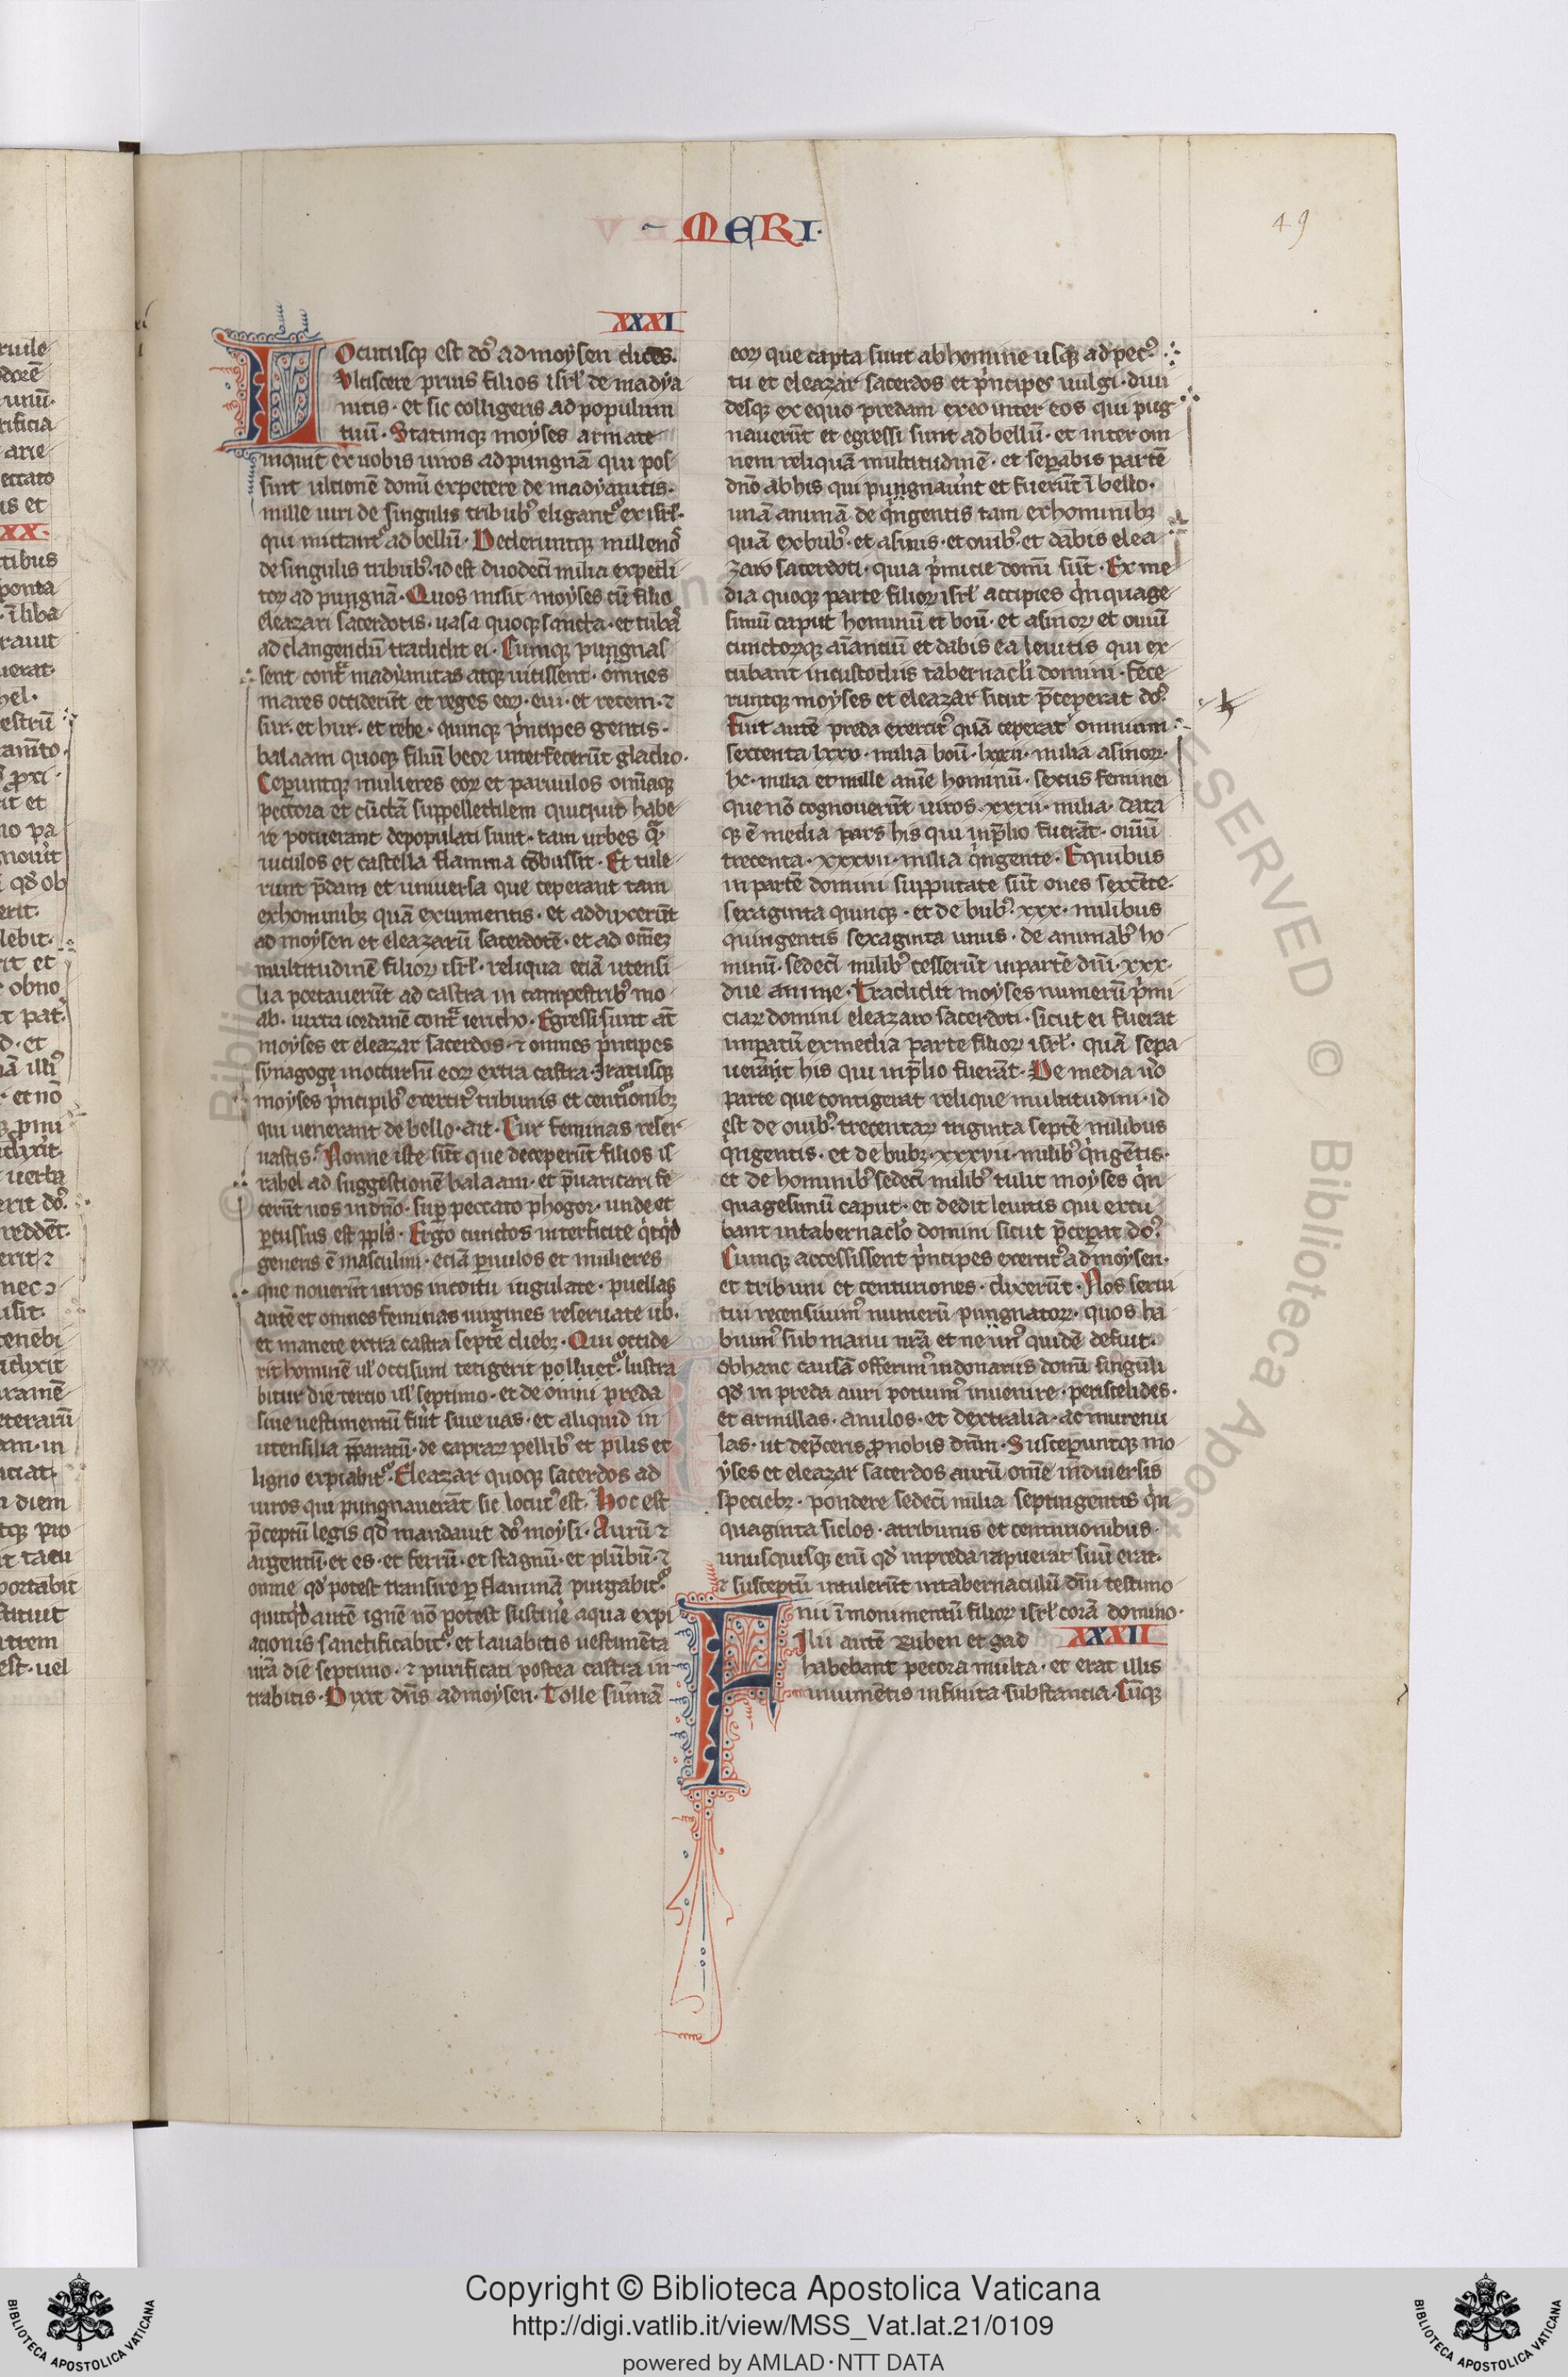 MERI.
49
XXXI
Locutusq; est dó ad moẏsen dices.
Vlciscere prius filios isrł de madẏa
nitis · et sic colligeris ad populum
tuū · Statimq; moẏses armate
inquit ex uobis uiros ad pungnā qui pos
sint ultionē domī expetere de madẏanitis ·
mille uiri de singulis tribubꝰ eligantᷣ ex isrł ·
qui mittantᷣ ad bellū · Dederuntq; millenoˢ
de singulis tribubꝰ · id est duodecī milia expedi
toꝝ ad pungnā · Quos misit moẏses cū filio
eleazari sacerdotis · uasa quoq; sancta · et tubaˢ
ad clangendū tradidit ei · Cumq; pungnas
sent contᷓ madẏanitas atq; uicissent · omnes
mares occiderūt et reges eoꝝ · eui · et recem · ⁊
sur · et hur · et rebe · quinq; pⁱncipes gentis ·
balaam quoq; filiū beor interfecerūt gladio ·
Ceperuntq; mulieres eoꝝ et paruulos omīaq;
peccora et cūctā suppellectilem quicquid habe
re potuerant depopulati sunt · tam urbes qᷓ
uiculos et castella flamma cōbussit · Et tule
runt p̄dam et uniuersa que ceperant tam
ex hominibꝫ quā ex iumentis · et adduxcerūt
ad moẏsen et eleazarū sacerdotē · et ad omēꝫ
multitudinē filioꝝ isrł · reliqua eciā utensi
lia poetauerūt ad castra in campestribꝰ mo
ab · iuxta iordanē contᷓ iericho · Egressi sunt aūt
moẏses et eleazar sacerdos · ⁊ omnes pⁱncipes
sẏnagoge in occursū eoꝝ extra castra · Iratusq;
moẏses pⁱncipibꝰ exercitꝰ tribunis et centᷣionibꝫ
qui uenerant de bello · ait · Cur feminas reser
uastis · Nonne iste sūt que deceperūt filios is
rahel ad suggestionē balaam · et p̄uaricari fe
cerūt uos in dn̄o · suꝑ peccato phogor · unde et
ꝑcussus est ppłs · Ergo cunctos interficite qⁱcqⁱd
generis ē masculini · eciā ꝑuulos et mulieres
que nouerūt uiros in coitu iugulate · puellas
autē et omnes feminas uirgines reseruate uob ·
et manete extra castra septē diebꝫ · Qui occide
rit hominē ul' occisum tetigerit polluetᷣ · lustra
bitur die tercio ul' septimo · et de omni preda
siue uestimentū fūit siue uas · et aliquid in
utensilia p̄paratū · de capraꝝ pellibꝰ et pilis et
ligno expiabitᷣ · Eleazar quoq; sacerdos ad
uiros qui pungnauerāt sic locutꝰ est · Hoc est
p̄ceptū legis qd̓ mandauit dó moẏsi · Aurū ⁊
argentū · et es · et ferrū · et stagnū · et plūbū · ⁊
omne qd̓ potest transire ꝑ flammā purgabitᷣ ·
quicqⁱd autē ignē nō potest sustinē aqua expi
acionis sanctificabitᷣ · et lauabitis uestimēta
ur̄a die septimo · ⁊ purificati postea castra in
trabitis · Dixit dn̄s ad moẏsen · Tolle sūmā
eoꝝ que capta sunt ab homine usq; ad pecꝰ ·
tu et eleazar sacerdos et pⁱncipes uulgi · diui
desq; ex equo predam ex eo inter eos qui pug
nauerūt et egressi sunt ad bellū · et inter om
nem reliquā multitudinē · et seꝑabis partē
dn̄o ab his qui pungnaūnt et fuerūt ī bello ·
unā animā de qⁱngentis tam ex hominibꝫ
quā ex bubꝰ · et asinis · et ouibꝰ · et dabis elea
zaro sacerdoti · quia pⁱmicie domī sūt · Ex me
dia quoq; parte filioꝝ isrł accipies qⁱnquage
simū caput hominū et boū · et asinoꝝ et ouiū
cunctoꝝq; aīanciū et dabis ea leuitis qui ex
cubant in custodiis tabernacłi domini · fece
runtq; moẏses et eleazar sicut p̄ceperat dó
Fuit autē preda exercitꝰ quā ceperat omnium
sexcenta lxxv · milia boū · lxxii · milia asinoꝝ ·
lx · milia et mille anīe hominū · sexus feminei
que nō cognouerūt uiros · xxxii · milia · data
q; ē media pars his qui in p̄lio fuerāt · ouiū
trecenta · xxxvii · milia qⁱngente · Equibus
in partē domini supputate sūt oues sexcēte ·
sexaginta quinq; · et de bubꝰ · xxx · milibus
quingentis sexaginta unus · de animabꝰ ho
minū · sedecī milibꝰ cesserūt in partē dn̄i · xxx ·
due anime · Tradidit moẏses numerū pⁱmi
ciaꝝ domini eleazaro sacerdoti · sicut ei fuerat
imꝑatū ex media parte filioꝝ isrł · quā sepa
uerānt his qui in p̄lio fuerāt · De media uo
parte que contigerat relique multitudini · id
est de ouibꝰ · trecentaꝝ triginta septē milibus
qⁱngentis · et de bubꝫ · xxxvii · milibꝰ qⁱngētis ·
et de hominibꝰ sedecī milibꝰ tulit moẏses qⁱn
quagesimū caput · et dedit leuitis qui excu
bant in tabernacło domini sicut p̄ceꝑat dó
Cumq; accessissent pⁱncipes exercitꝰ ad moẏsen ·
et tribuni et centuriones · dixcerūt · Nos serui
tui recensuimꝰ numerū pungnatoꝝ · quos ha
buimꝰ sub manu nr̄a et ne unꝰ quidē defuit ·
ob hanc causā offerimꝰ in donariis domī singuli
qd̓ in preda auri potuimꝰ inuenire · peristelides ·
et armillas · anulos · et dextralia · ac murenu
las · ut dep̄ceris ꝓ nobis dn̄m · Susceperuntq; mo
ẏses et eleazar sacerdos aurū omē in diuersis
speciebꝫ · pondere sedecī milia septingentis qⁱn
quaginta siclos · a tribunis et centurionibus ·
unusquisq; enī qd̓ in preda rapuerat suū erat ·
⁊ susceptū intulerūt in tabernaculū dn̄i testimo
nii ī monimentū filioꝝ isrł corā domino ·
Filii autē Ruben et gad XXXII
habebant pecora multa · et erat illis
in iumētis infinita substantia · Cūq;
Copyright © Biblioteca Apostolica Vaticana
http://digi.vatlib.it/view/MSS_Vat.lat.21/0109
powered by AMLAD · NTT DATA
BIBLIOTECA APOSTOLICA VATICANA
BIBLIOTECA APOSTOLICA VATICANA